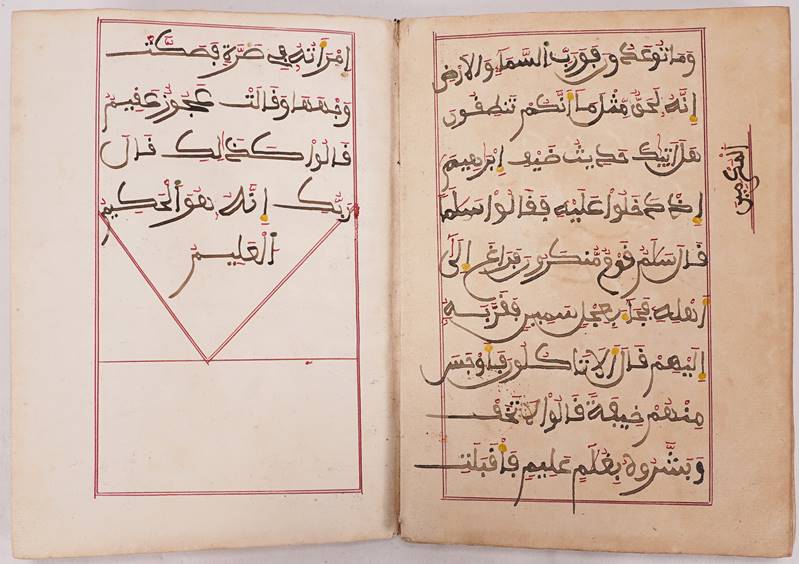 وَمَا تُوعَدُونَ فَوَرَبِّ السَّمَآءِ وَالْاَرْضِ
إِنَّهُۥ لَحَقٌّ مِّثْلَ مَآ أَنَّكُمْ تَنطِقُونَ
هَلَ اَتٰيكَ حَدِيثُ ضَيْفِ إِبْرٰهِيمَ
المكرمين
إِذْ دَخَلُوا عَلَيْهِ فَقَالُوا سَلَٰمًا
قَالَ سَلَٰمٌ قَوْمٌ مُّنكَرُونَ فَرَاغَ إِلَىٰٓ
أَهْلِهِۦ فَجَآءَ بِعِجْلٍ سَمِينٍ فَقَرَّبَهُۥٓ
إِلَيْهِمْ قَالَ أَلَا تَاكُلُونَ فَأَوْجَسَ
مِنْهُمْ خِيفَةً قَالُوا لَا تَخَفْ
وَبَشَّرُوهُ بِغُلَٰمٍ عَلِيمٍ فَأَقْبَلَتِ
اِمْرَأَتُهُۥ فِي صَرَّةٍ فَصَكَّتْ
وَجْهَهَا وَقَالَتْ عَجُوزٌ عَقِيمٌ
قَالُوا كَذَٰلِكِ قَالَ
رَبُّكِ إِنَّهُۥ هُوَ الْحَكِيمُ
الْعَلِيمُ